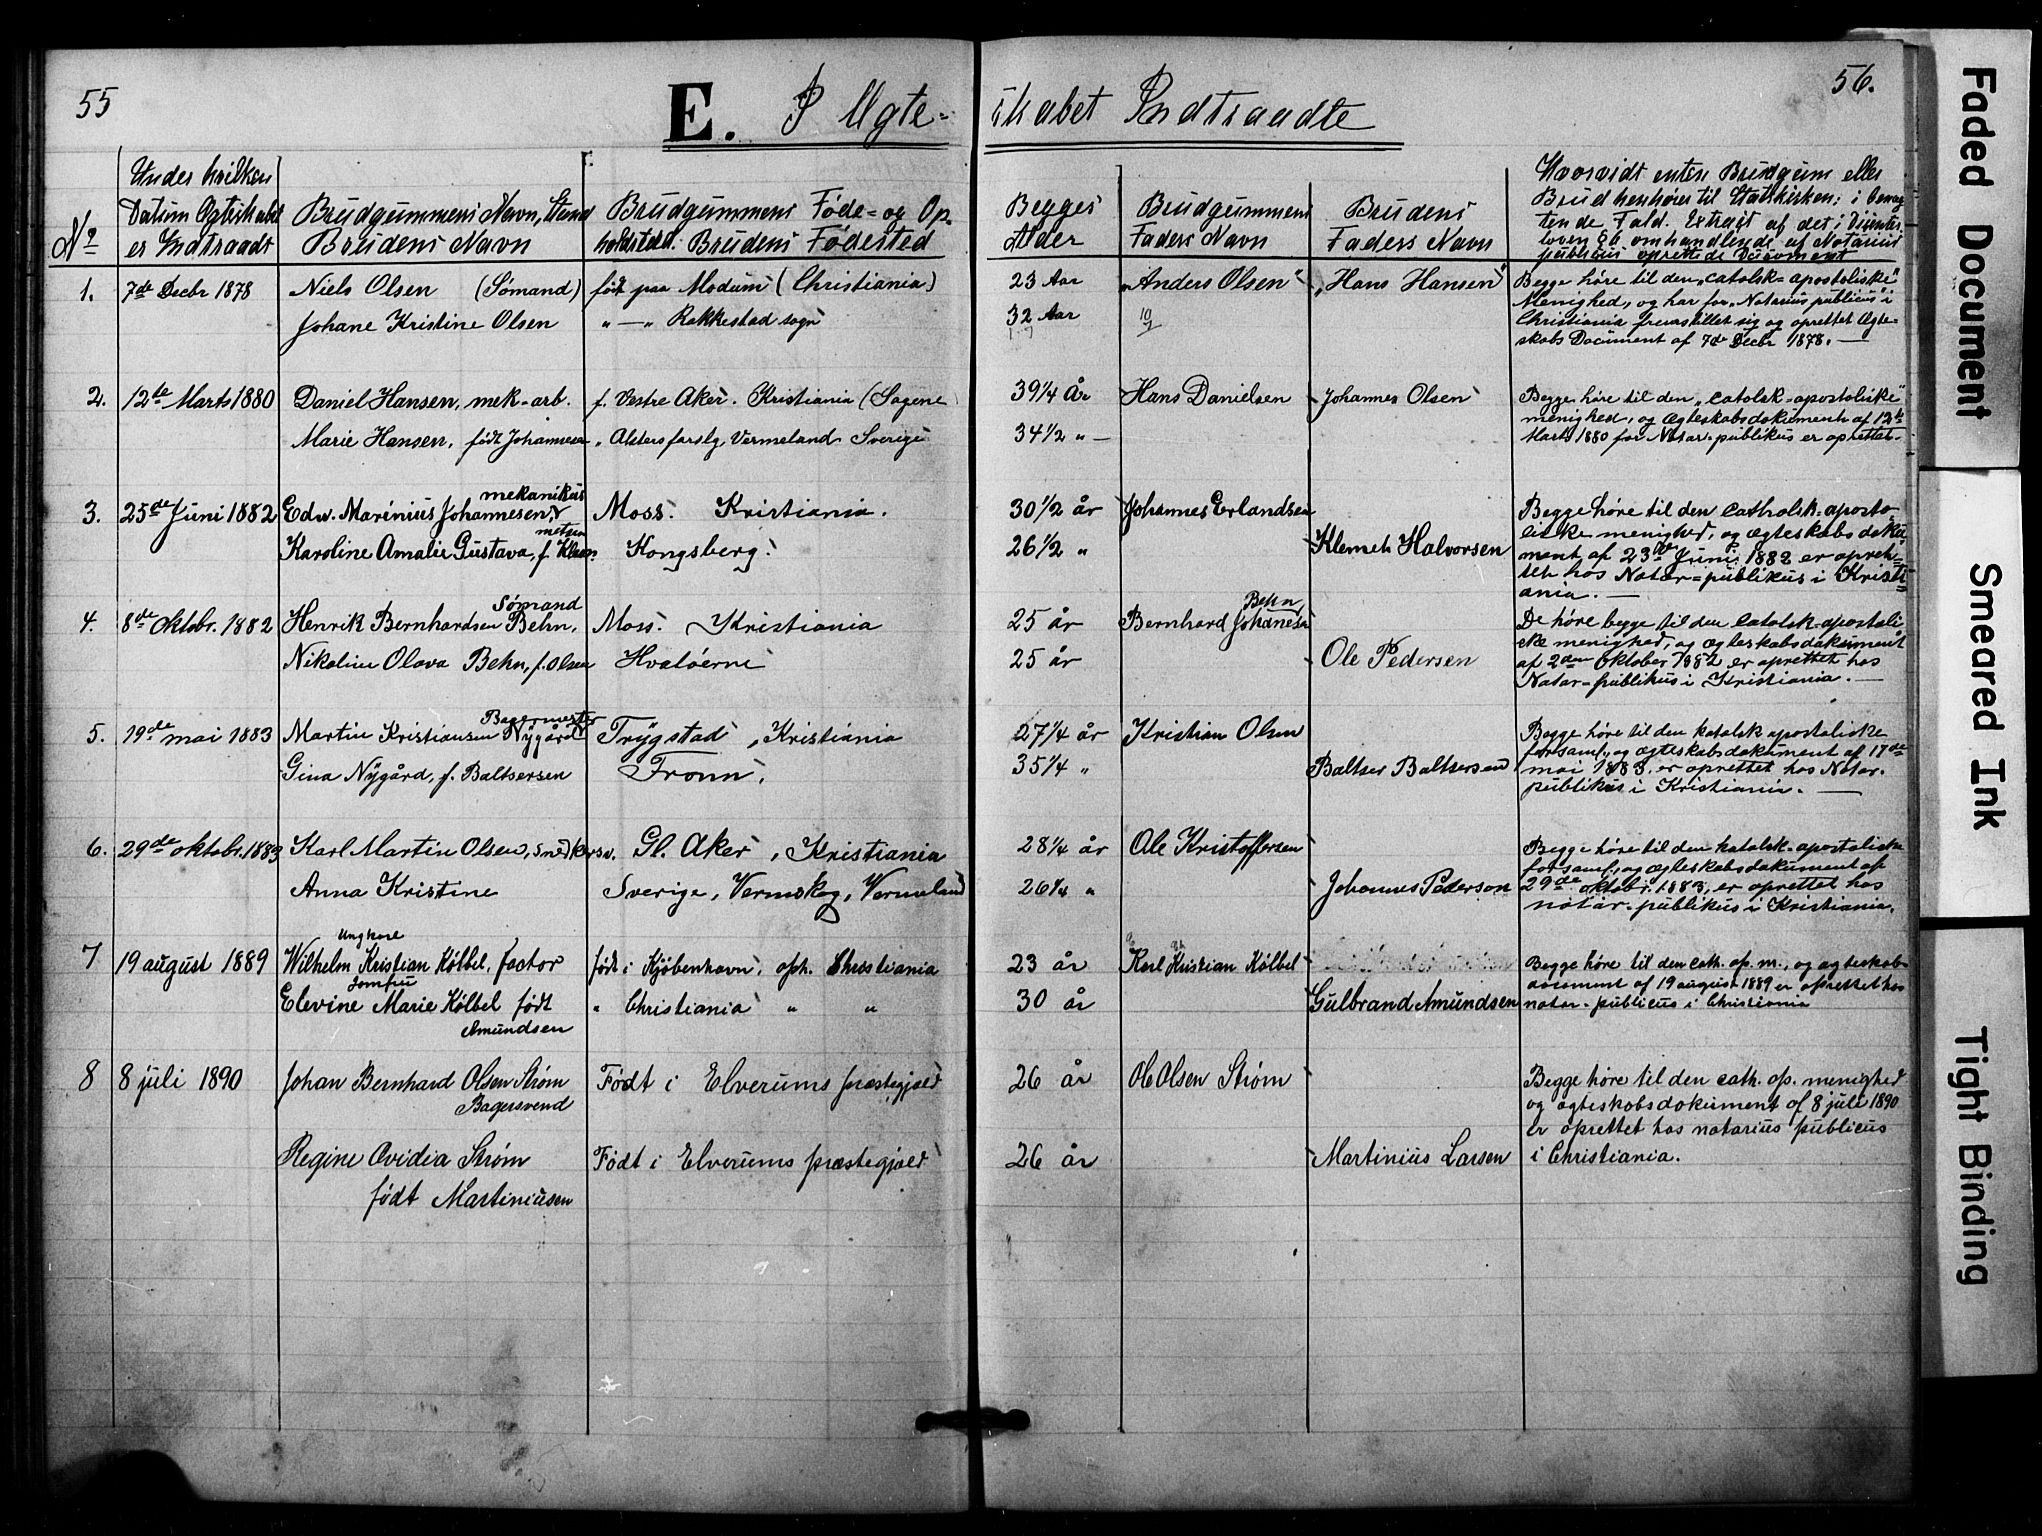 55
E. I Ægte-
skabet Indtraadte
56.
No
Under hvilken Datum Ægteskabet er Indtraadt
Brudgummens Navn, Stand
Brudens Navn
Brudgummens Føde- og Op-
holdsted. Brudens Fødested
Begges Alder
Brudgummens Faders Navn
Brudens Faders Navn
Hvorvidt enten Brudgum eller
Brud henhører til Statskirken; i benæg-
tende Fald. Extract af det i Dissenter
loven § 6 omhandlende af Notarius
publicus oprettede Document
1. 7de Decbr 1878 Niels Olsen (Sømand) født paa Modum (Christiania) 23 Aar "Anders Olsen" "Hans Hansen" Begge høre til den "catolsk=apostoliske"
Menighed, og har for "Notarius publicus" i
Johane Kristine Olsen " — " Rakkestad sogn 32 Aar 10/7 Christiania fremstillet sig og oprettet Ægte-
skabs Document af 7de Decbr 1878. —
2. 12te Marts 1880 Daniel Hansen, mek-arb. f. Vestre Aker. Kristiania (Sagene 39 1/4 År Hans Danielsen Johannes Olsen Begge høre til den "catolsk=apostoliske"
menighed, og Ægteskabsdokument af 12te
Marie Hansen, født Johannesen " Alsters forslg, Vermeland Sverige 34 1/2 " — Marts 1880 for Notar. publikus er oprettet-
mekanikus
3. 25de Juni 1882 Edw. Marinius Johannesen, Moss. Kristiania. 30 1/2 år Johannes Erlandsen Begge høre til den catholsk-aposto-
liske menighed, og ægteskabsdoku-
Karoline Amalie Gustava, f. Klem metsen Kongsberg. 26 1/2 " Klemet Halvorsen ment af 23de Juni 1882 er opret-
tet hos Notar=publikus i Kristi-
ania. —
Sømand
4. 8de Oktobr. 1882 Henrik Bernhardsen Behn, Moss. Kristiania 25 år Bernhard Johannesen Behn De høre begge til den catolsk-apostoli
ske menighed, og ægteskabsdokument
Nikoline Olava Behn, f. Olsen Hvaløerne 25 år Ole Pedersen af 2den Oktober 1882 er oprettet hos
Notar-publikus i Kristiania. —
Bagermester
5. 19de mai 1883 Martin Kristiansen Nygård Trygstad, Kristiania 27 1/4 år Kristian Olsen Begge høre til den katolsk apostoliske
forsaml., og ægteskabsdokument af 19de
Gina Nygård, f. Baltsersen Fronn. 35 1/4 " Baltser Baltsersen mai 1883, er oprettet hos Notar.
publikus i Kristiania. —
6. 29de oktobr. 1883 Karl Martin Olsen, snedkersv. Gl. Aker, Kristiania 28 1/4 år Ole Kristoffersen Begge høre til den katolsk-apostoliske
forsaml, og ægteskabsdokument af
Anna Kristine Sverige, Vermskog, Vermeland 26 1/4 " Johannes Pederson 29de oktobr. 1883, er oprettet hos
notar. publikus i Kristiania.
Ungkarl
7 19 august 1889 Wilhelm Kristian Kølbel, factor født i Kjøbenhavn, oph. Christiania 23 år Karl Kristian Kølbel Begge høre til den cath. ap. m., og ægteskabs-
Jomfru
document af 19 august 1889 er oprettet hos
Elevine Marie Kølbel født Amundsen " Christiania " " 30 år Gulbrand Amundsen notar. publicus i Christiania
8 8 juli 1890 Johan Bernhard Olsen Strøm Født i Elverums præstegjæld 26 år Ole Olsen Strøm Begge høre til den cath. ap. menighed
Bagersvend og ægteskabsdokument af 8 juli 1890
er oprettet hos notarius publicus
Regine Ovidia Strøm Født i Elverums præstegjæld 26 år Martinius Larsen i Christiania.
født Martiniusen
Faded Document
Smeared Ink
Tight Binding